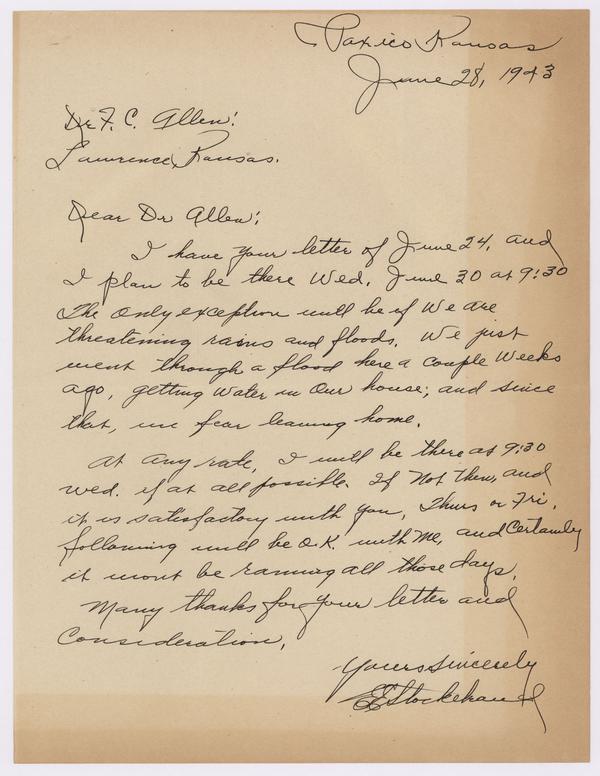 Paxico Kansas
June 28, 1943
Dr. F. C. Allen:
Lawrence, Kansas.
Dear Dr Allen:
I have your letter of June 24, and
I plan to be there Wed. June 30 at 9:30
The only exception will be if We are
threatening rains and floods. We just
went through a flood here a couple Weeks
ago, getting Water in Our house; and since
that, we fear leaving home.
At any rate, I will be there at 9:30
Wed. if at all possible. If Not then, and
it is satisfactory with you, Thurs or Fri,
following will be O.K. with Me, and Certainly
it wont be raining all those days.
Many thanks for your letter and
Consideration.
Yours Sincerely
E Stockebrand